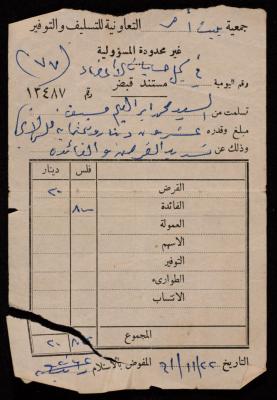 جمعية بيت أمر التعاونية للتسليف والتوفير
غير محدودة المسؤولية
(٧٧)
رقم اليومية مستند قبض رقم ١٣٤٨٧
تسلمت من السيد محمد ابراهيم
مبلغ وقدره عشرون دينار وثمنماية فلس
وذلك عن تسديد القرض والفائدة
فلس دينار
القرض ٢٠
الفائدة ٨٠٠
العمولة
الاسهم
التوفير
الطوارىء
الانتساب
المجموع ٨٠٠ ٢٠
التاريخ ٦١/١١/٢٢ المفوض بالاستلام